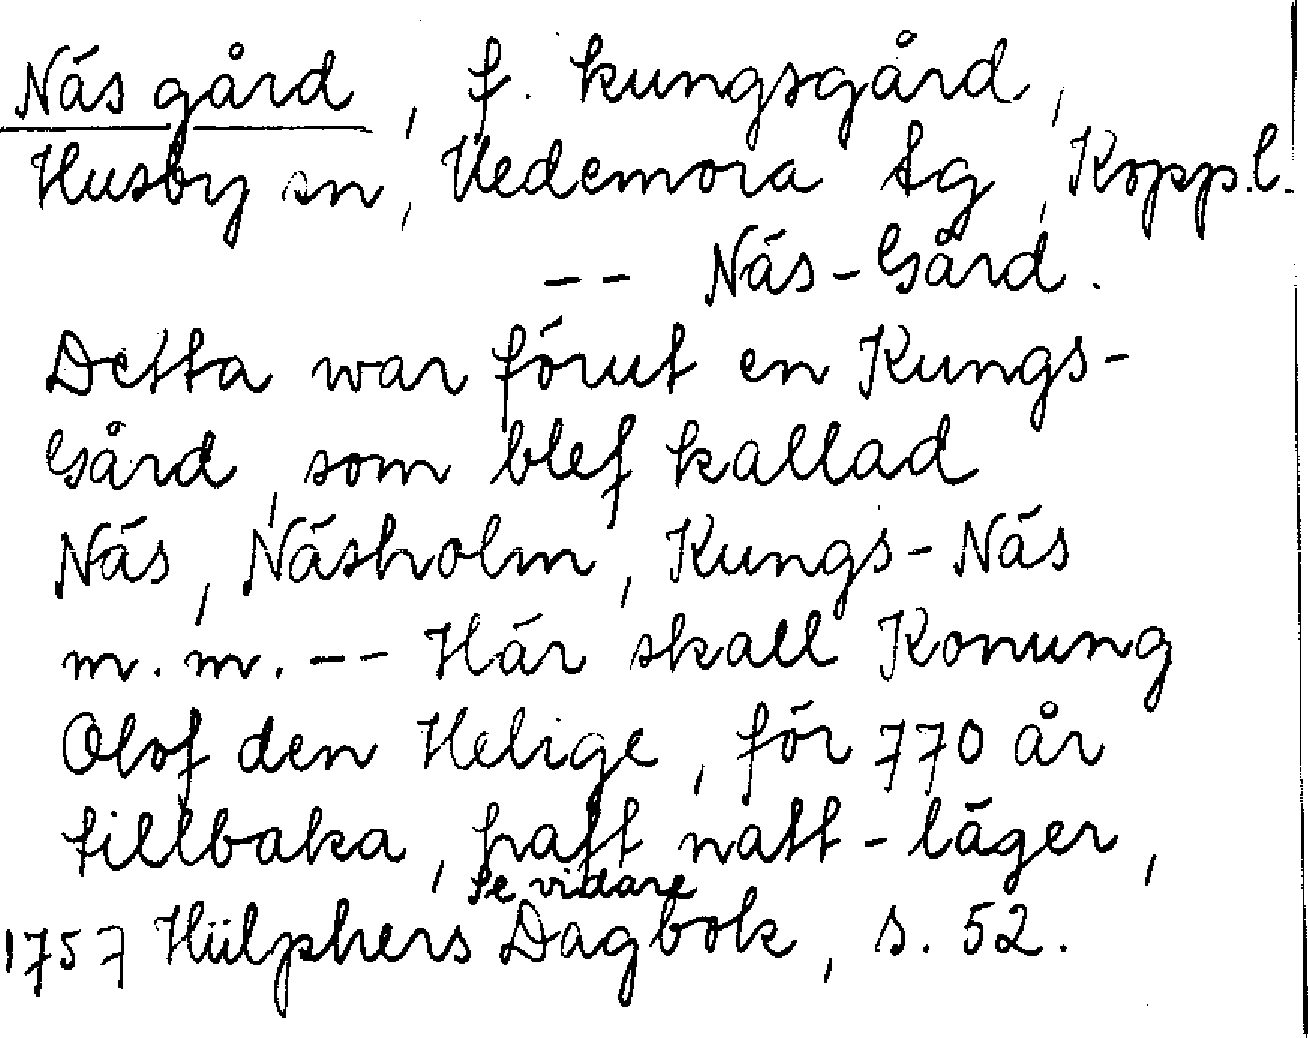 Näs gård, f. kungsgård,
Husby sn, Hedemora tg, Kopp.l.
-- Näs-Gård.
Detta war förut en Kungs-
Gård, som blef kallad
Näs, Näsholm, Kungs-Näs
m.m. -- Här skall Konung
Olof den Helige, för 770 år
tillbaka, haft natt-läger,
Se vidare
1757 Hülphers Dagbok, s. 52.